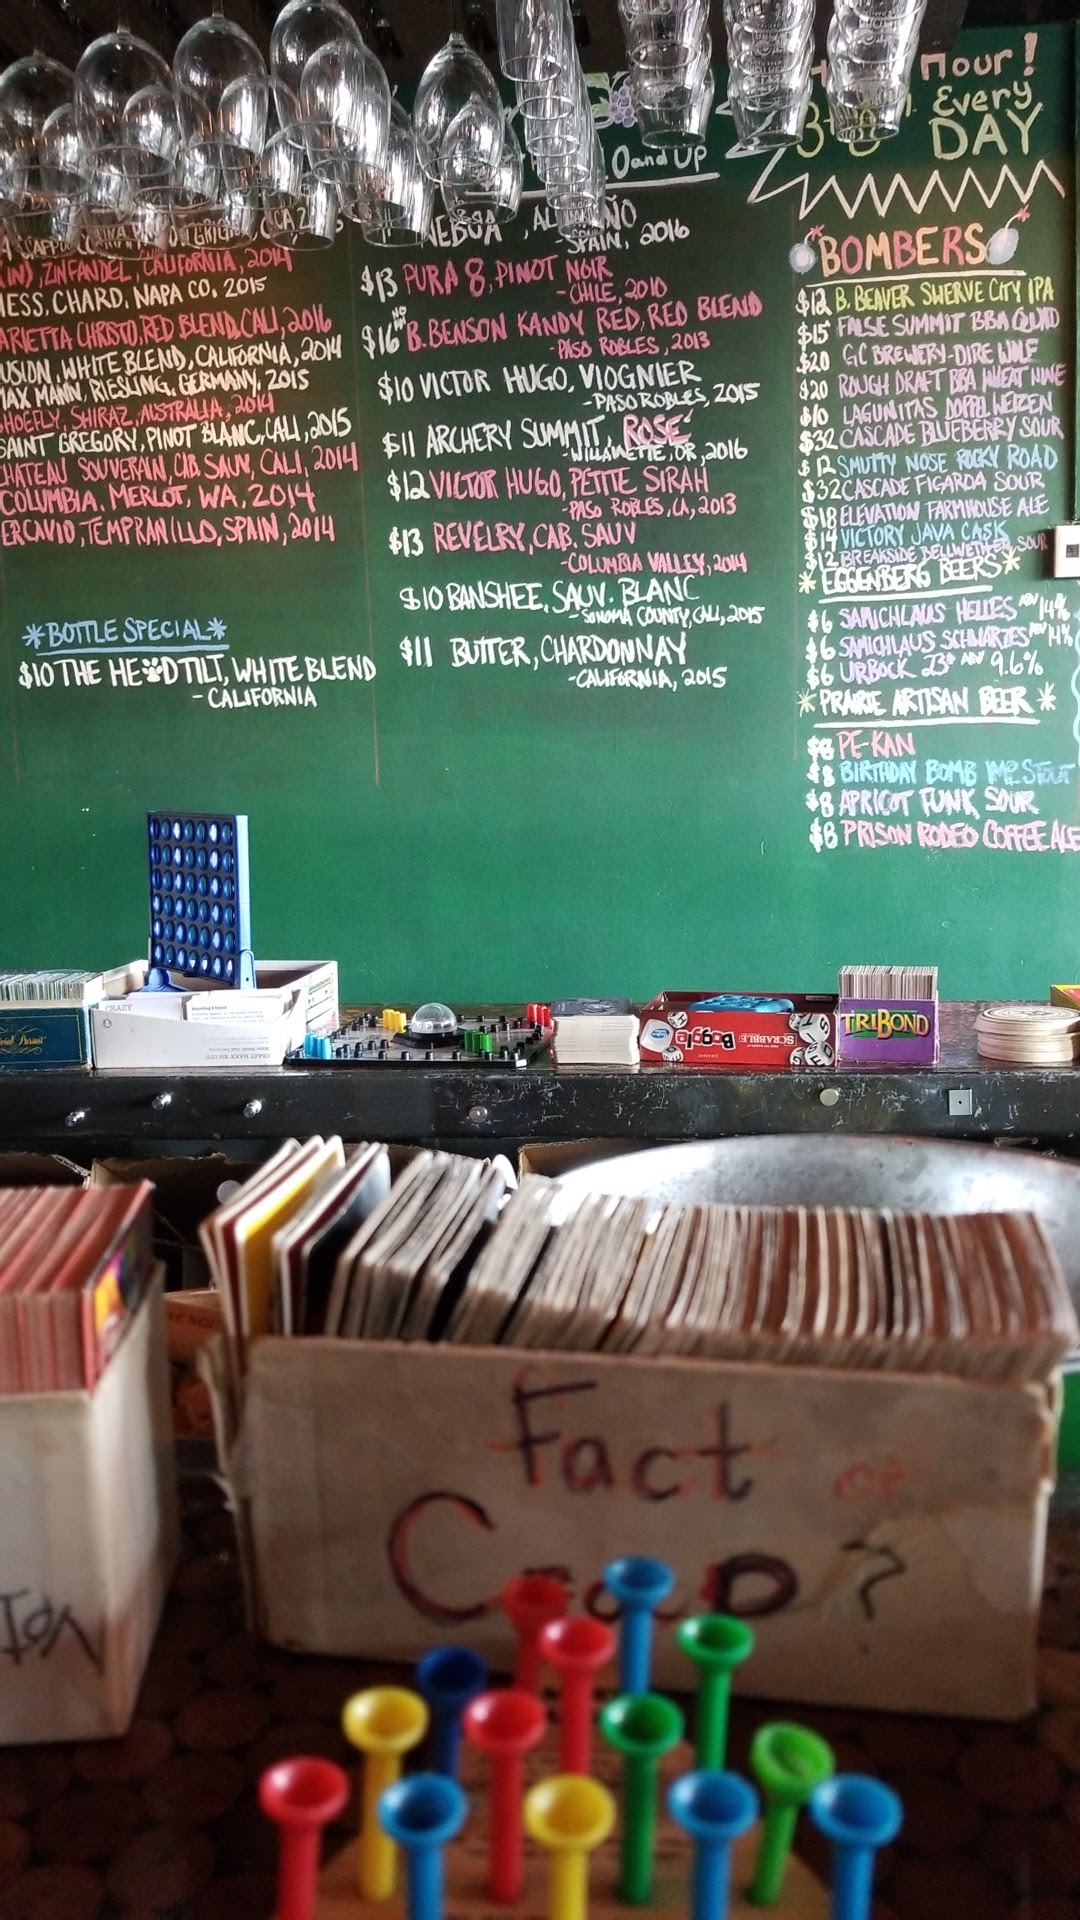 Hour!
Every
DAY
0 and UP
ZINFANDEL, CALIFORNIA, 2014
CHARD, NAPA CO. 2015
RED BLEND, CALI, 2016
WHITE BLEND, CALIFORNIA, 2014
MANN, RIESLING, GERMANY, 2015
SHIRAZ, AUSTRALIA, 2014
SAINT GREGORY, PINOT BLANC, CALI, 2015
CHATEAU SOUVERAIN, CAB. SAUV, CALI, 2014
COLUMBIA, MERLOT, WA, 2014
TEMPRANILLO, SPAIN, 2014
*BOTTLE SPECIAL*
$10 THE HE DTILT, WHITE BLEND
-CALIFORNIA
-SPAIN, 2016
$13 PURA 8, PINOT NOIR
-CHILE, 2010
$16 B. BENSON KANDY RED, RED BLEND
-PASO ROBLES, 2013
$10 VICTOR HUGO, VIOGNIER
-PASO ROBLES, 2015
$11 ARCHERY SUMMIT, ROSÉ
-WILLAMETTE, OR, 2016
$12 VICTOR HUGO, PETITE SIRAH
-PASO ROBLES, CA, 2013
$13 REVELRY, CAB. SAUV
-COLUMBIA VALLEY, 2014
$10 BANSHEE, SAUV. BLANC
-SONOMA COUNTY, CALI, 2015
$11 BUTTER, CHARDONNAY
-CALIFORNIA, 2015
BOMBERS
$12 B. BEAVER SWERVE CITY IPA
$15 FALSE SUMMIT BBA QUAD
$20 GC BREWERY-DIRE WOLF
$20 ROUGH DRAFT BBA WHEAT WINE
$10 LAGUNITAS DOPPEL WEIZEN
$32 CASCADE BLUEBERRY SOUR
$12 SMUTTY NOSE ROCKY ROAD
$32 CASCADE FIGARDA SOUR
$18 ELEVATION FARMHOUSE ALE
$14 VICTORY JAVA CASK
$12 BREAKSIDE BELLWETHER SOUR
*EGGENBERG BEERS*
$6 SAMICHLAUS HELLES ABV 14%
$6 SAMICHLAUS SCHWARZES ABV 14%
$6 URBOCK 23° ABV 9.6%
*PRAIRIE ARTISAN BEER*
$8 PE-KAN
$8 BIRTHDAY BOMB IMP. STOUT
$8 APRICOT FUNK SOUR
$8 PRISON RODEO COFFEE ALE
Pursuit
CRAZY
Boggle
SCRABBLE
TRIBOND
Fact or
Crap?